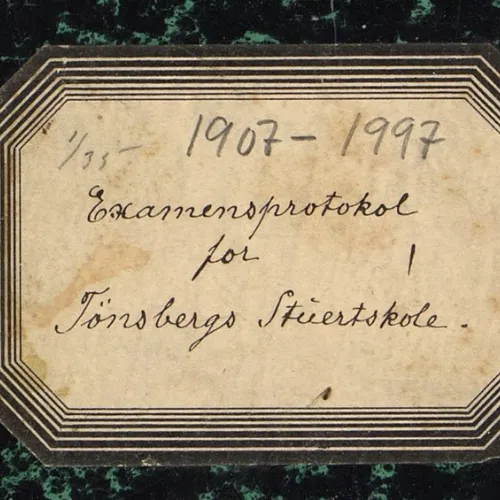 1/35 - 1907 - 1997
Examensprotokol
for
Tönsbergs Stüertskole.